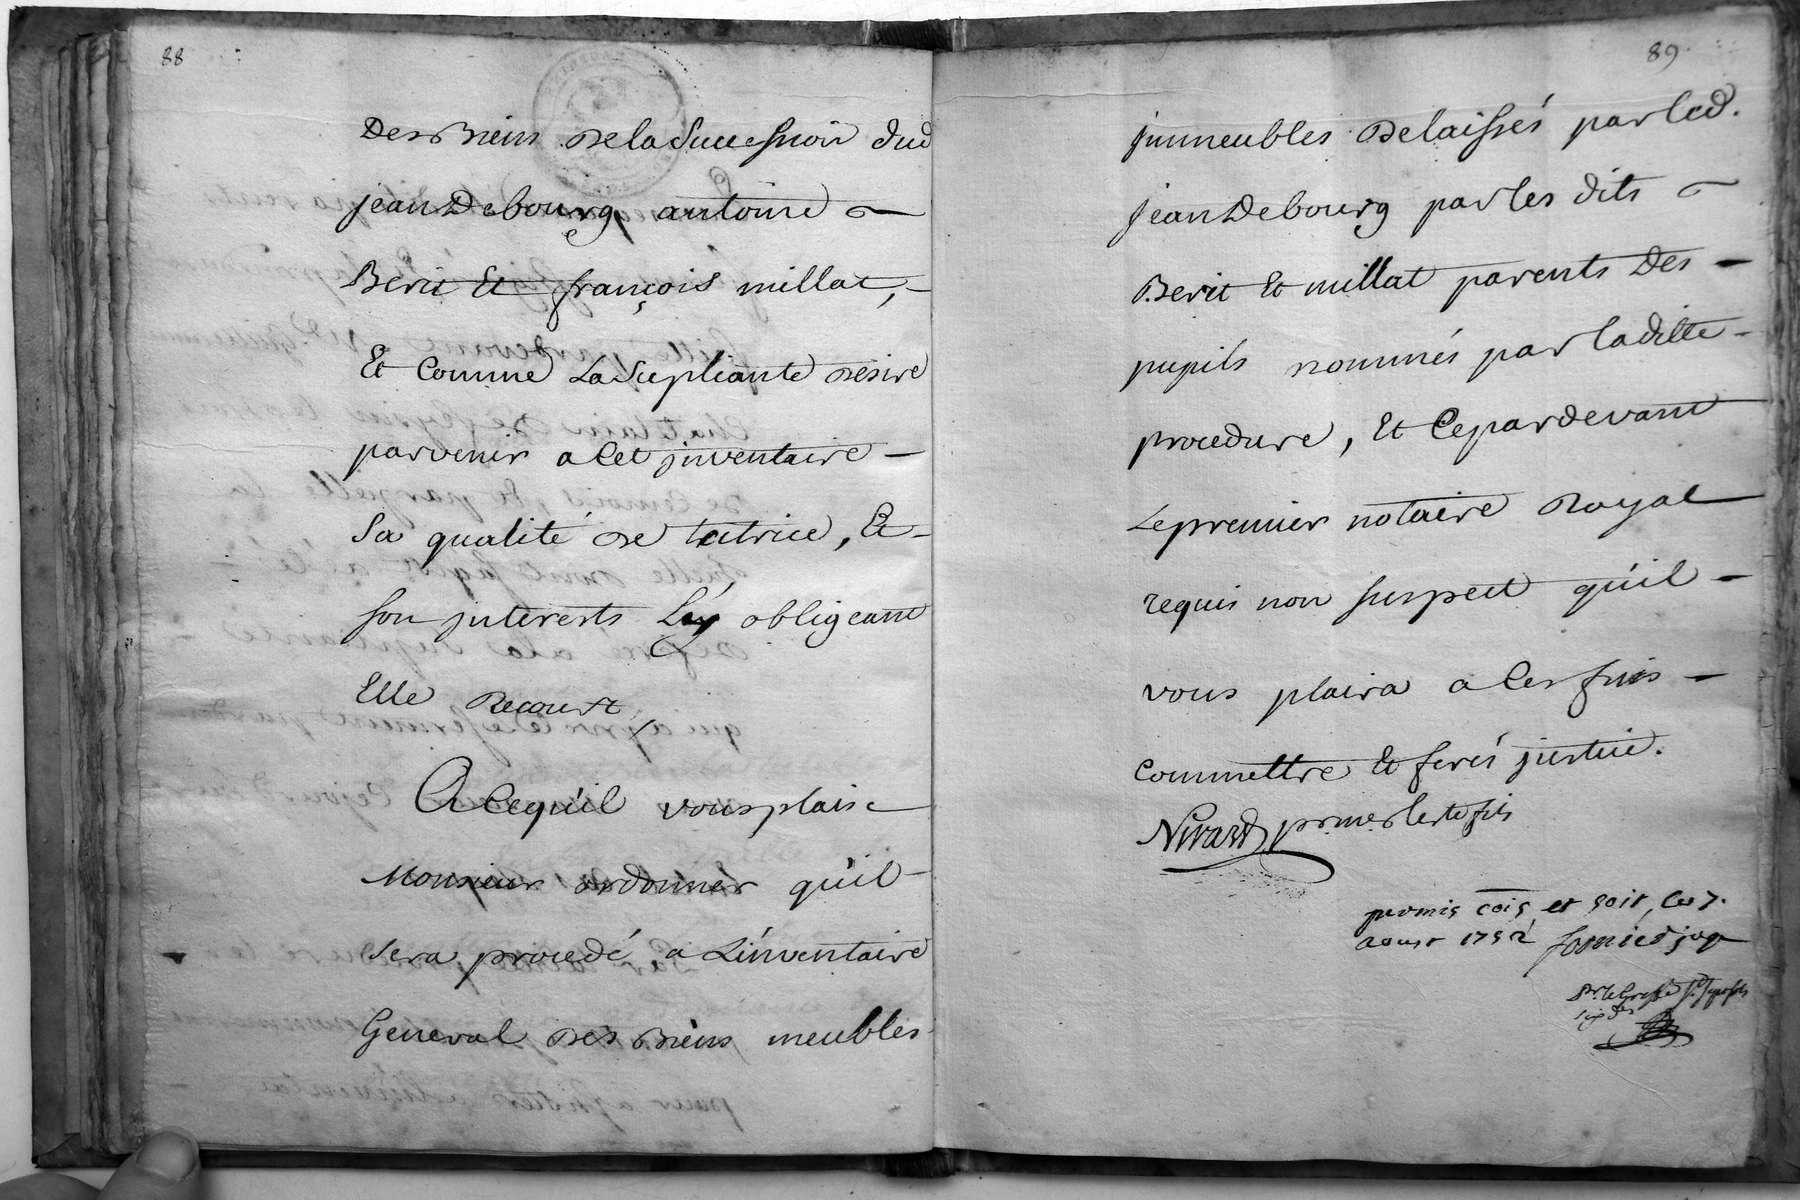 88
Des Biens De la Succession dud
jean Debourg antoine
Berit Et françois millat,
Et Comme La Supliante desire
parvenir a Cet jnventaire
Sa qualité de tutrice, Et
son jnterests L'y obligeant
Elle Recourt,
A Cequ'il vous plaise
Monsieur ordonner qu'il
sera procedé a L'inventaire
General Des Biens meubles
89
jmmeubles Delaissés par led.
jean Debourg par les dits
Berit Et millat parents Des
pupils nommés par la ditte
procedure, Et Ce pardevant
Le premier notaire Royal
requis non suspect qu'il
vous plaira a Ces fins
Commettre Et ferés justice.
Nivard
permis et soit, Ce 7.
aoust 1752